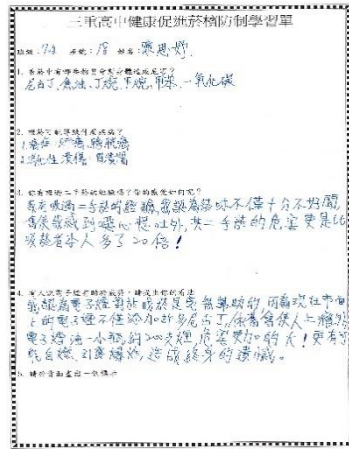 三重高中健康促進菸檳防制學習單
班級：7-8 座號：18 姓名：
1. 香菸中有哪些物質會對身體造成危害？
尼古丁、焦油、丁烷、甲烷、甲苯、一氧化碳
2. 吸菸可能導致什麼疾病？
1.癌症：肺癌、膀胱癌
2.消化性潰瘍：胃潰瘍
3. 你有吸過二手菸的經驗嗎？你的感覺如何呢？
我有吸過二手菸的經驗，我認為
不僅十分不好聞，
會使我感到噁心想吐外，其二手菸的危害更是比
吸菸者本人多了20倍！
4. 有人說電子煙有助於戒菸，請說出你的看法
我認為電子煙對於戒菸是毫無幫助的，而且現在市面
上的電子煙不僅添加許多尼古丁，依舊會使人上癮外，
電子煙油一小瓶約200支煙，危害更加的大！更有可
能自燃、引發爆炸，造成終身的遺憾。
5. 請於背面畫出一張標示